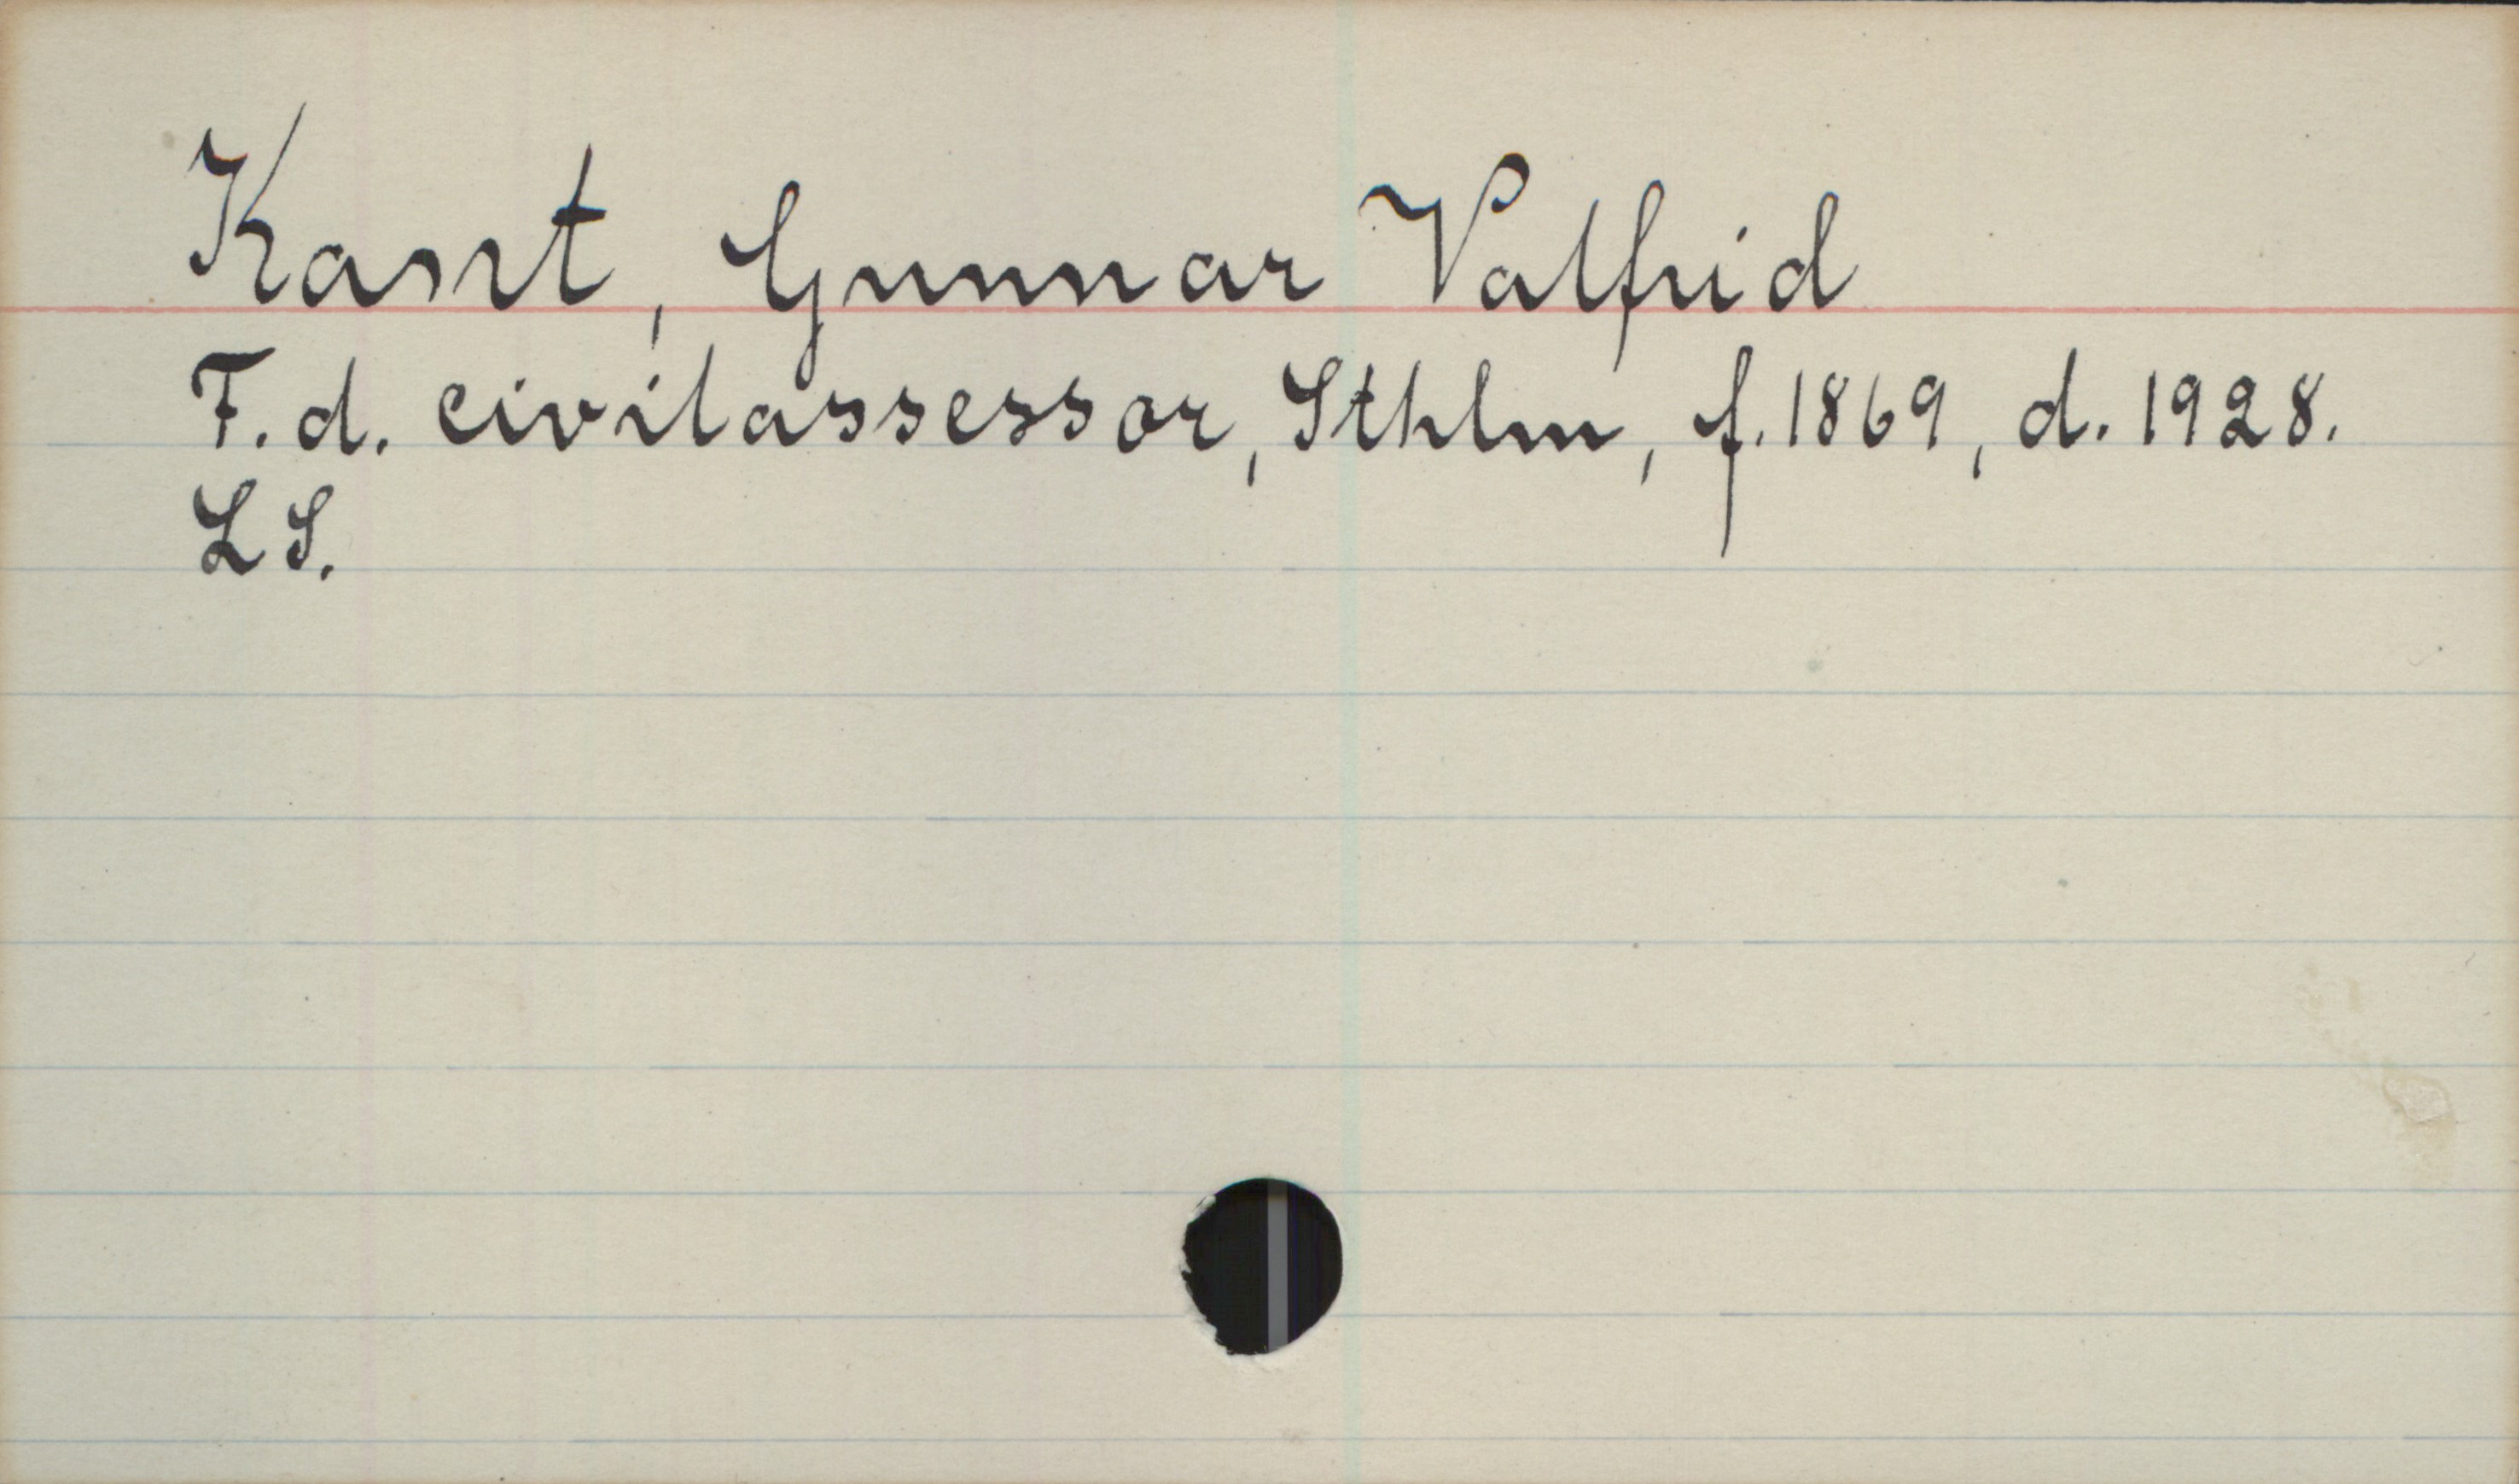 Kant, Gunnar Valfrid
F.d. civilassessor, Sthlm, f. 1869, d. 1928.
LS.